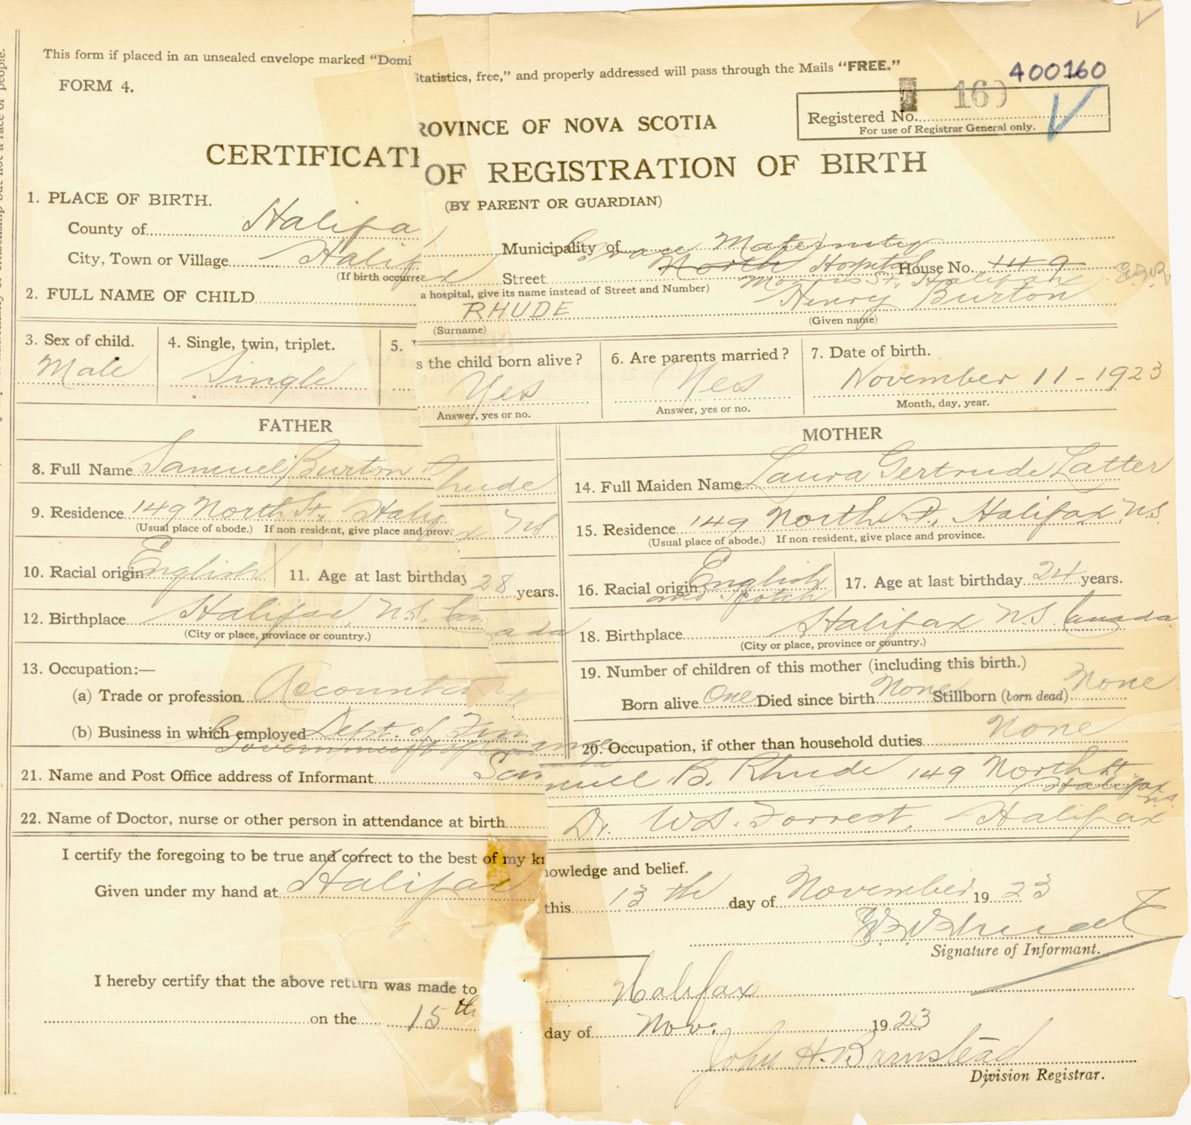 This form if placed in an unsealed envelope marked “Domi
Statistics, free,” and properly addressed will pass through the Mails “FREE.”
FORM 4.
400160
160
Registered No.
For use of Registrar General only.
ROVINCE OF NOVA SCOTIA
CERTIFICATI OF REGISTRATION OF BIRTH
(BY PARENT OR GUARDIAN)
1. PLACE OF BIRTH.
County of Halifax Municipality of Grace Maternity
City, Town or Village Halifax Street North Hospital House No. 149
Morris St. Halifax
(If birth occurred a hospital, give its name instead of Street and Number)
2. FULL NAME OF CHILD RHUDE Henry Burton
(Surname) (Given name)
3. Sex of child. Male
4. Single, twin, triplet. Single
5. s the child born alive? Yes
Answer, yes or no.
6. Are parents married? Yes
Answer, yes or no.
7. Date of birth. November 11 - 1923
Month, day, year.
FATHER
8. Full Name Samuel Burton Rhude
9. Residence 149 North St, Halifax NS
(Usual place of abode.) If non-resident, give place and prov
10. Racial origin English
11. Age at last birthday 28 years.
12. Birthplace Halifax, N.S. Canada
(City or place, province or country.)
13. Occupation:—
(a) Trade or profession Accountant
(b) Business in which employed Dept. of Finance
MOTHER
14. Full Maiden Name Laura Gertrude Latter
15. Residence 149 North St, Halifax N.S.
(Usual place of abode.) If non-resident, give place and province.
16. Racial origin English and Scotch
17. Age at last birthday 24 years.
18. Birthplace Halifax N.S. Canada
(City or place, province or country.)
19. Number of children of this mother (including this birth.)
Born alive One Died since birth None Stillborn (born dead) None
20. Occupation, if other than household duties None
21. Name and Post Office address of Informant Samuel B. Rhude 149 North St.
Halifax N.S.
22. Name of Doctor, nurse or other person in attendance at birth Dr. W.D. Forrest, Halifax
I certify the foregoing to be true and correct to the best of my knowledge and belief.
Given under my hand at Halifax this 13th day of November 1923
Signature of Informant.
I hereby certify that the above return was made to Halifax
on the 15th day of Nov. 1923
John H. Barnstead
Division Registrar.